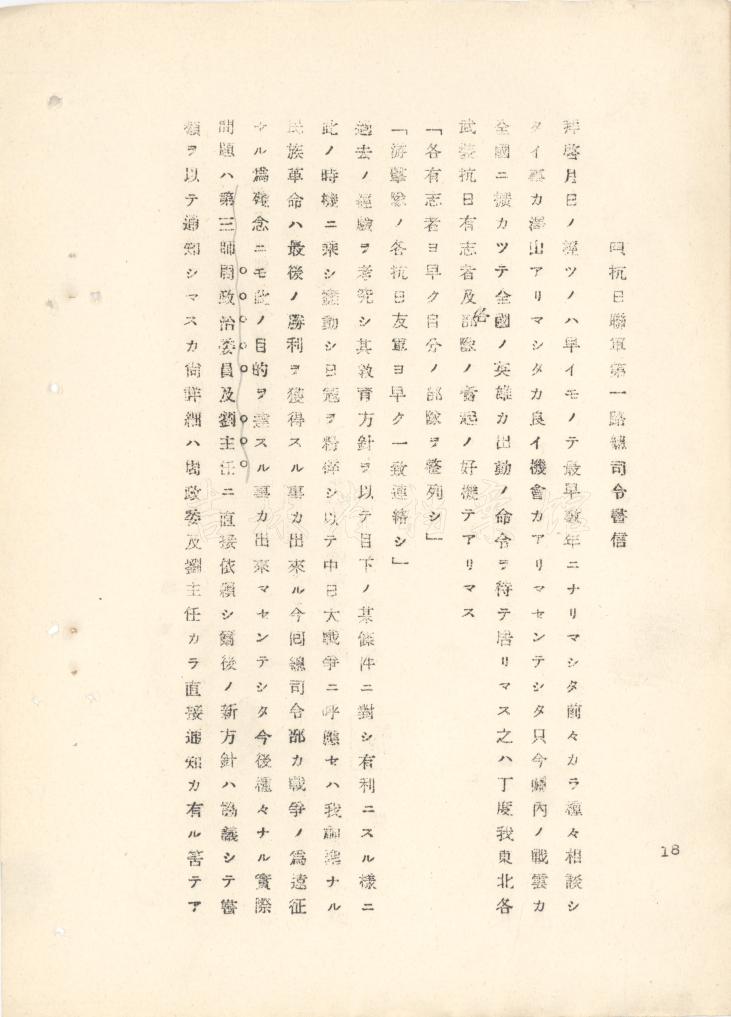 四 抗日聯軍第一路總司令書信
拜啓月日ノ經ツノハ早イモノテ最早數年ニナリマシタ前々カラ種々相談シ
タイ事カ澤山アリマシタカ良イ機會カアリマセンテシタ只今 內ノ戰雲カ
全國ニ擴カツテ全國ノ英雄カ出動ノ命令ヲ待テ居リマス之ハ丁度我東北各
武裝抗日有志者及各部隊ノ奮起ノ好機テアリマス
「各有志者ヨ早ク自分ノ部隊ヲ整列シ」
「游擊隊ノ各抗日友軍ヨ早ク一致連絡シ」
過去ノ經驗ヲ考究シ其教育方針ヲ以テ目下ノ某條件ニ對シ有利ニスル樣ニ
此ノ時機ニ乘シ 動シ日寇ヲ粉碎シ以テ中日大戰爭ニ呼應セハ我 ナル
民族革命ハ最後ノ勝利ヲ獲得スル事カ出來ル今回總司令部カ戰爭ノ爲遠征
セル爲殘念ニモ此ノ目的ヲ達スル事カ出來マセンテシタ今後種々ナル實際
問題ハ第三師周政治委員及劉主任ニ直接依賴シ爾後ノ新方針ハ協議シテ書
類ヲ以テ通知シマスカ尙詳細ハ周政委及劉主任カラ直接通知カ有ル筈テア
18
吉林省檔案館